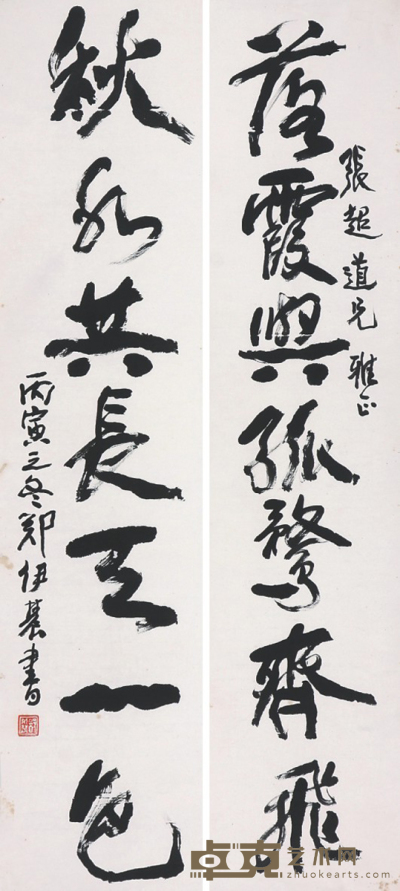 落霞與孤鶩齊飛
張超道兄雅正
秋水共長天一色
丙寅之冬鄭伊農書
卓克艺术网
zhuokearts.com